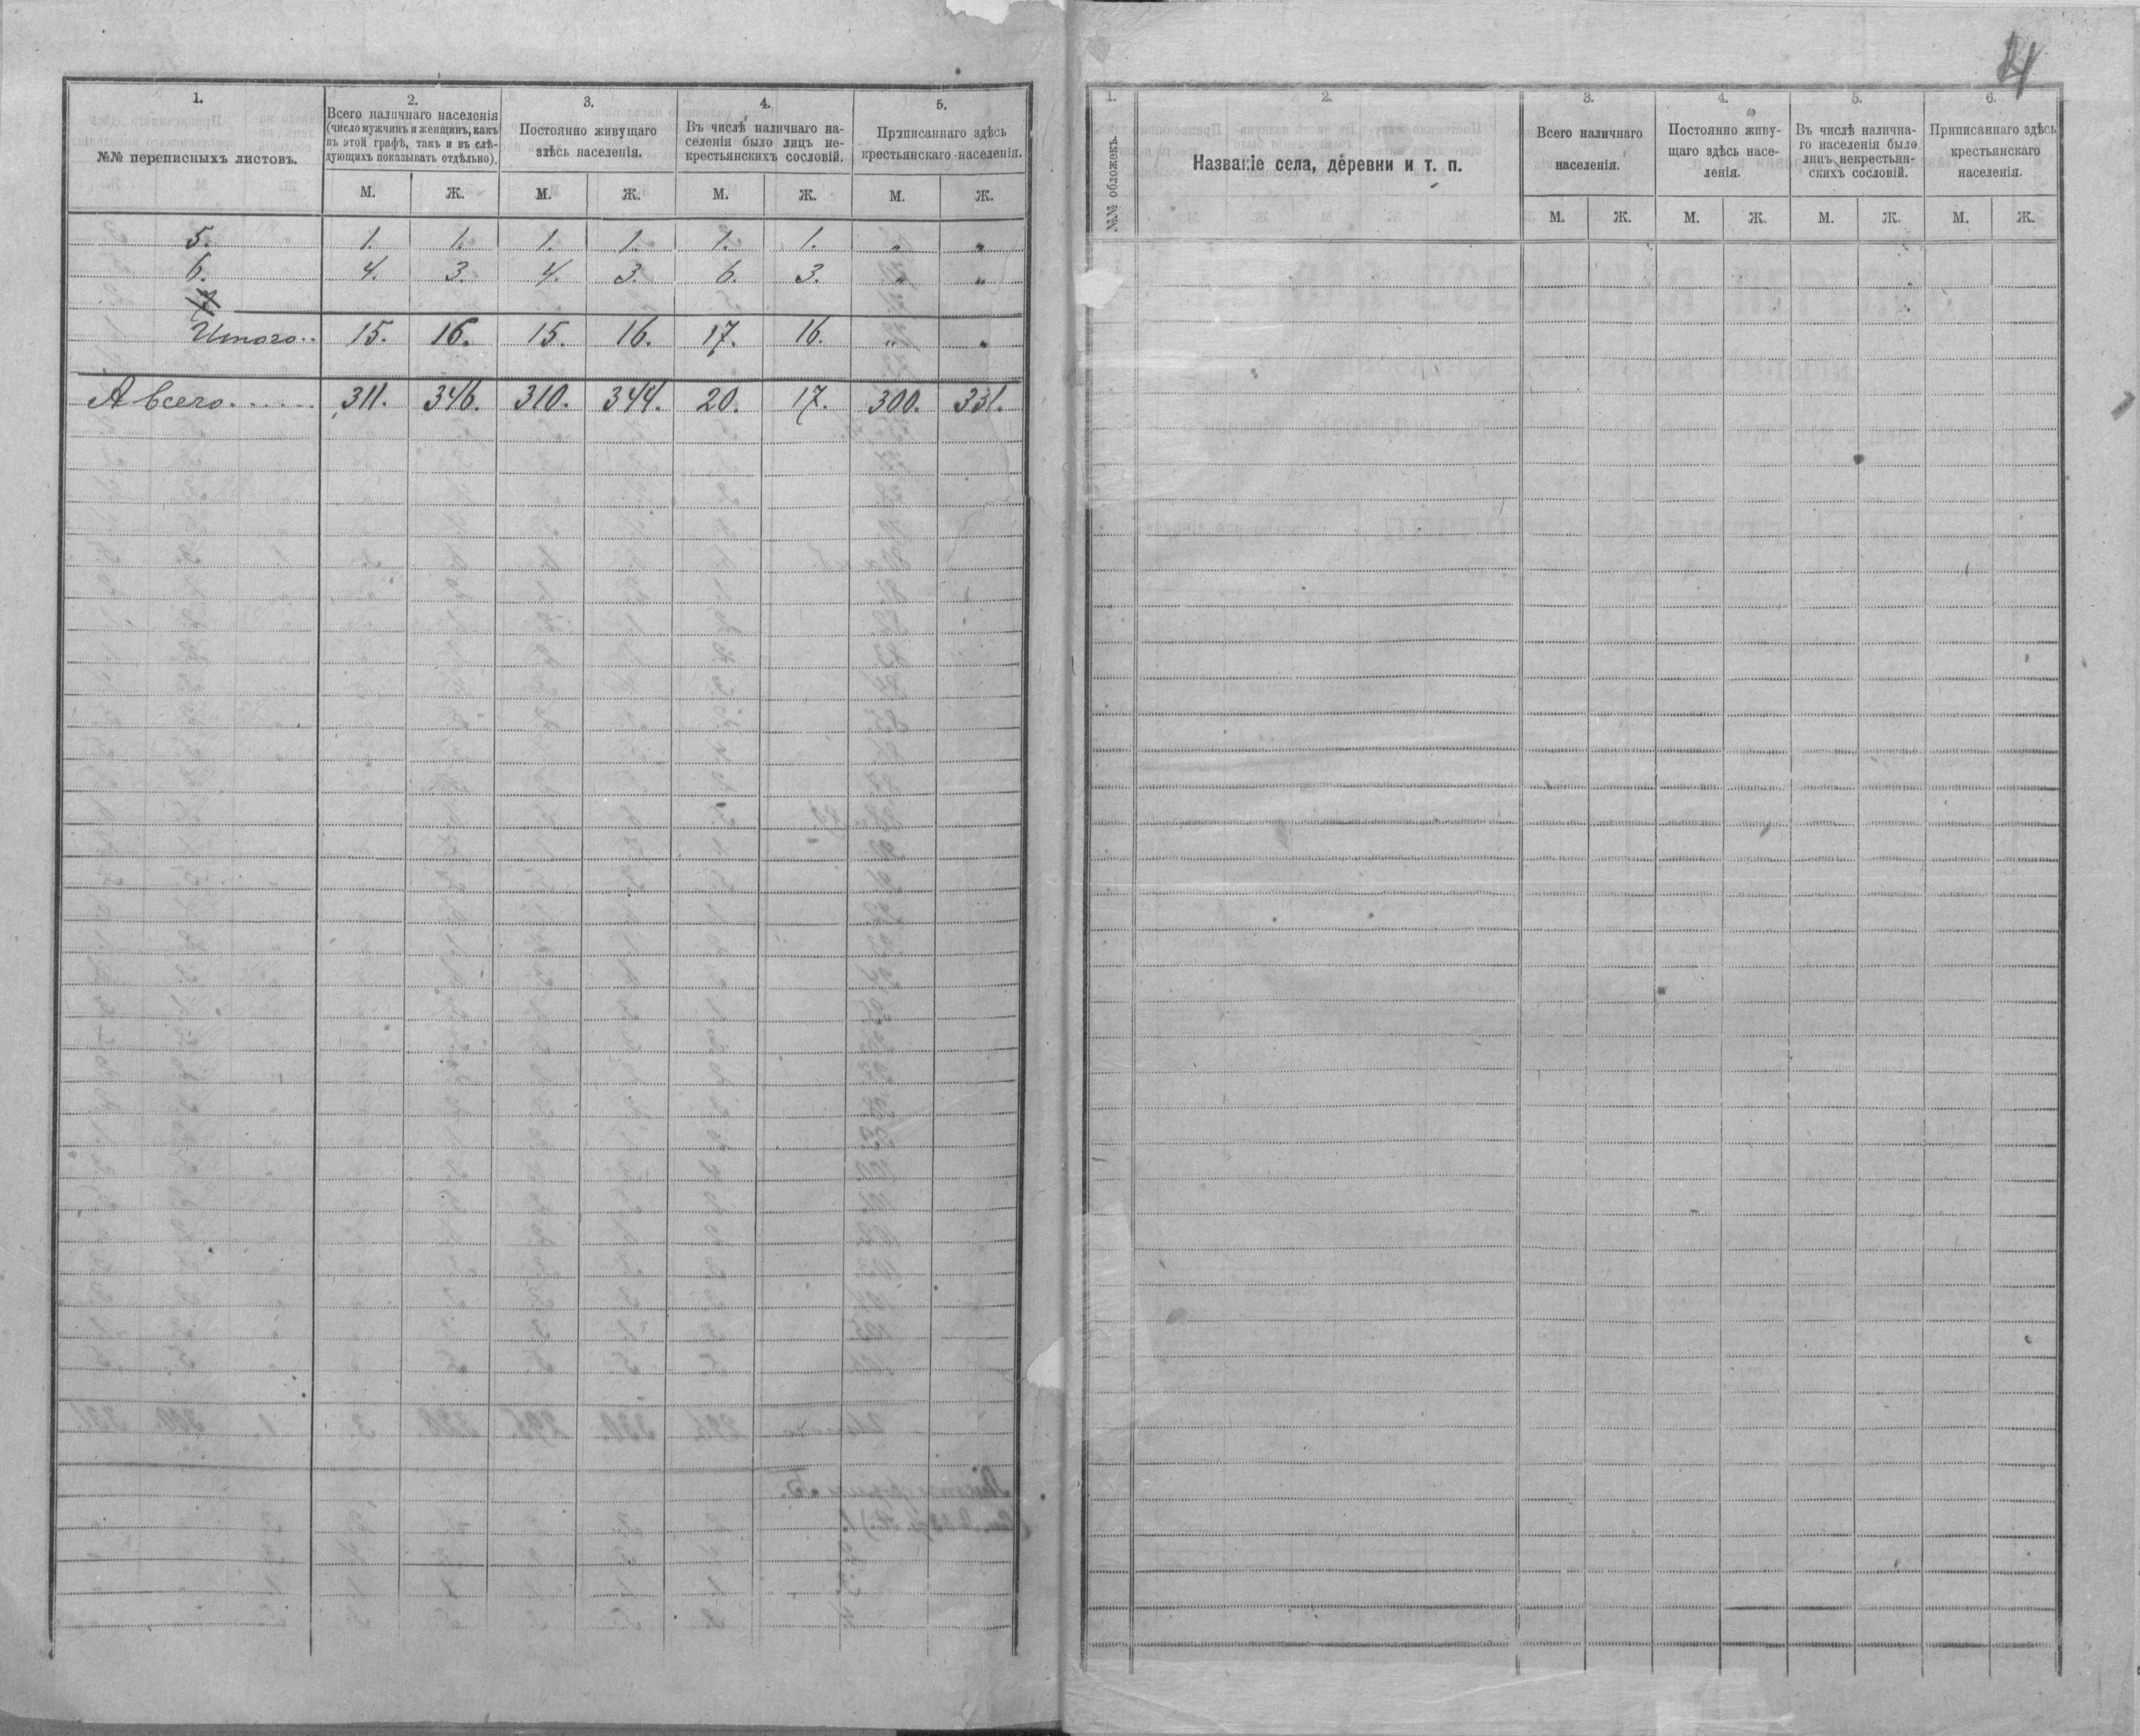 1.
№№ переписныхъ листовъ.
2.
Всего наличнаго населенія
(число мужчинъ и женщинъ, какъ
въ этой графѣ, такъ и въ слѣ-
дующихъ показывать отдѣльно).
3.
Постоянно живущаго
здѣсь населенія.
4.
Въ числѣ наличнаго на-
селенія было лицъ не-
крестьянскихъ сословій.
5.
Приписаннаго здѣсь
крестьянскаго населенія.
М. Ж. М. Ж. М. Ж. М. Ж.
5. 1. 1. 1. 1. 1. 1. „ „
6. 4. 3. 4. 3. 6. 3. „ „
Итого.. 15. 16. 15. 16. 17. 16. „ „
А всего...... 311. 346. 310. 344. 20. 17. 300. 331.
4
1.
№№ обложекъ.
2.
Названіе села, деревни и т. п.
3.
Всего наличнаго
населенія.
4.
Постоянно живу-
щаго здѣсь насе-
ленія.
5.
Въ числѣ налична-
го населенія было
лицъ некрестьян-
скихъ сословій.
6.
Приписаннаго здѣсь
крестьянскаго
населенія.
М. Ж. М. Ж. М. Ж. М. Ж.